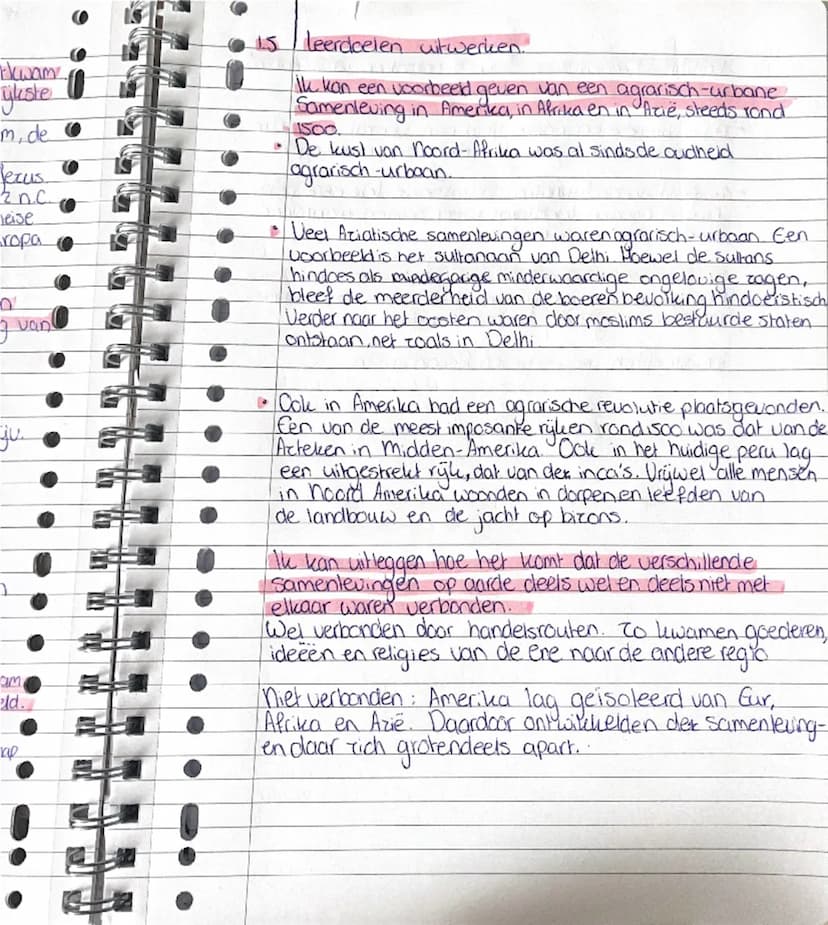 t kwam
ijkste
m, de
Jezus
2 n.C.
ropa
n
g van
ju.
am
eld.
ap
1.5 leerdoelen uitwerken.
Ik kan een voorbeeld geven van een agrarisch-urbane
Samenleving in Amerika, in Afrika en in Azië, steeds rond
1500.
• De kust van Noord-Afrika was al sinds de oudheid
agrarisch-urbaan.
• Veel Aziatische samenlevingen waren agrarisch-urbaan. Een
voorbeeld is het sultanaan van Delhi. Hoewel de sultans
hindoes als minderwaardige ongelovige zagen,
bleef de meerderheid van de boeren bevolking hindoeïstisch
Verder naar het oosten waren door moslims bestuurde staten
ontstaan, net zoals in Delhi
• Ook in Amerika had een agrarische revolutie plaatsgevonden.
Een van de meest imposante rijken rond 1500 was dat van de
Azteken in Midden-Amerika. Ook in het huidige peru lag
een uitgestrekt rijk, dat van der inca's. Vrijwel alle mensen
in Noord Amerika woonden in dorpen en leefden van
de landbouw en de jacht op bizons.
Ik kan uitleggen hoe het komt dat de verschillende
samenlevingen op aarde deels wel en deels niet met
elkaar waren verbonden.
Wel verbonden door handelsrouten. Zo kwamen goederen,
ideeën en religies van de ene naar de andere regio
Niet verbonden: Amerika lag geïsoleerd van Eur,
Afrika en Azië. Daardoor ontwikkelden der samenleving-
en daar zich grotendeels apart.